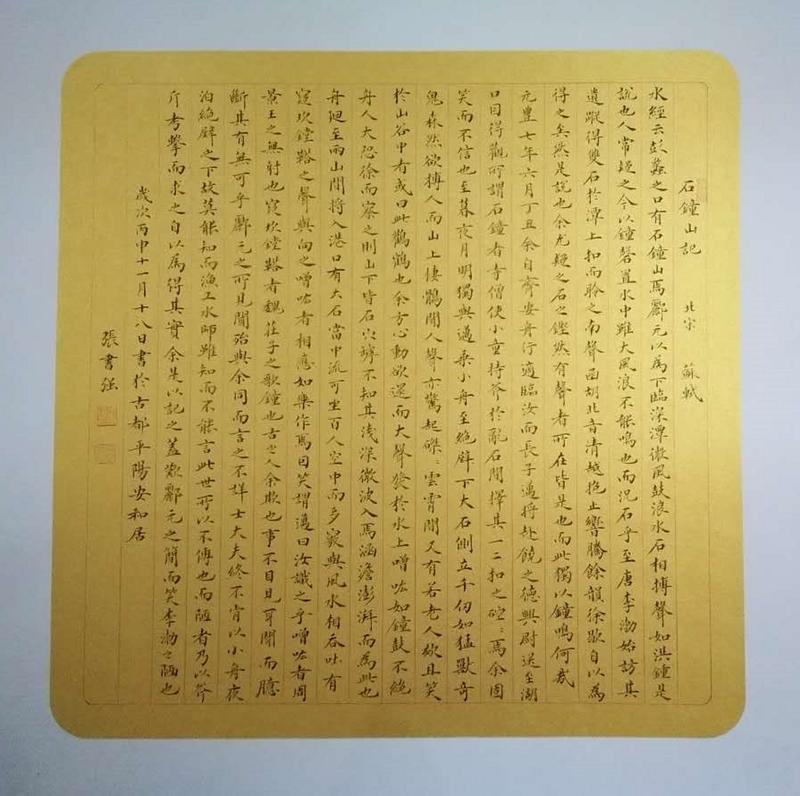 石鐘山記 北宋 蘇軾
水經云彭蠡之口有石鐘山焉酈元以為下臨深潭微風鼓浪水石相搏聲如洪鐘是
說也人常疑之今以鐘磬置水中雖大風浪不能鳴也而況石乎至唐李渤始訪其
遺蹤得雙石於潭上扣而聆之南聲函胡北音清越枹止響騰餘韻徐歇自以為
得之矣然是說也余尤疑之石之鏗然有聲者所在皆是也而此獨以鐘鳴何哉
元豐七年六月丁丑余自齊安舟行適臨汝而長子邁將赴饒之德興尉送至湖
口因得觀所謂石鐘者寺僧使小童持斧於亂石間擇其一二扣之硿：焉余固
笑而不信也至暮夜月明獨與邁乘小舟至絕壁下大石側立千仞如猛獸奇
鬼森然欲搏人而山上棲鶻聞人聲亦驚起磔：雲霄間又有若老人欬且笑
於山谷中者或曰此鸛鶴也余方心動欲還而大聲發於水上噌吰如鐘鼓不絕
舟人大恐徐而察之則山下皆石穴罅不知其淺深微波入焉涵澹澎湃而為此也
舟迴至兩山間將入港口有大石當中流可坐百人空中而多竅與風水相吞吐有
窾坎鏜鞳之聲與向之噌吰者相應如樂作焉因笑謂邁曰汝識之乎噌吰者周
景王之無射也窾坎鏜鞳者魏莊子之歌鐘也古之人余欺也事不目見耳聞而臆
斷其有無可乎酈元之所見聞殆與余同而言之不詳士大夫終不肯以小舟夜
泊絕壁之下故莫能知而漁工水師雖知而不能言此世所以不傳也而陋者乃以斧
斤考擊而求之自以為得其實余是以記之蓋歎酈元之簡而笑李渤之陋也
歲次丙申十一月十八日書於古都平陽安和居
張書强